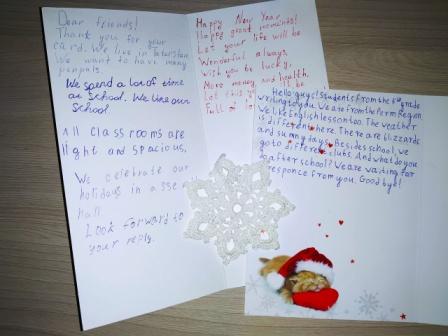 Dear friends!
Thank you for your
card. We live in Tatarstan.
We want to have many
penpals.
We spend a lot of time
at school. We like our
school.
All classrooms are
light and spacious.
We celebrate our
holidays in asse
hall.
Look forward to
your reply.
Happy New Year
Happy great moments!
Let your life will be
Wonderful always,
Wish you be lucky,
More money and health,
Let this
Full of lo
Hello guys! Students from the 6th grade
writing to you. We are from the Perm Region.
We like English lesson too. The weather
is different here. There are blizzards
and sunny days. Besides school, we
go to different clubs. And what do you
do after school? We are waiting for
responce from you. Good bye!